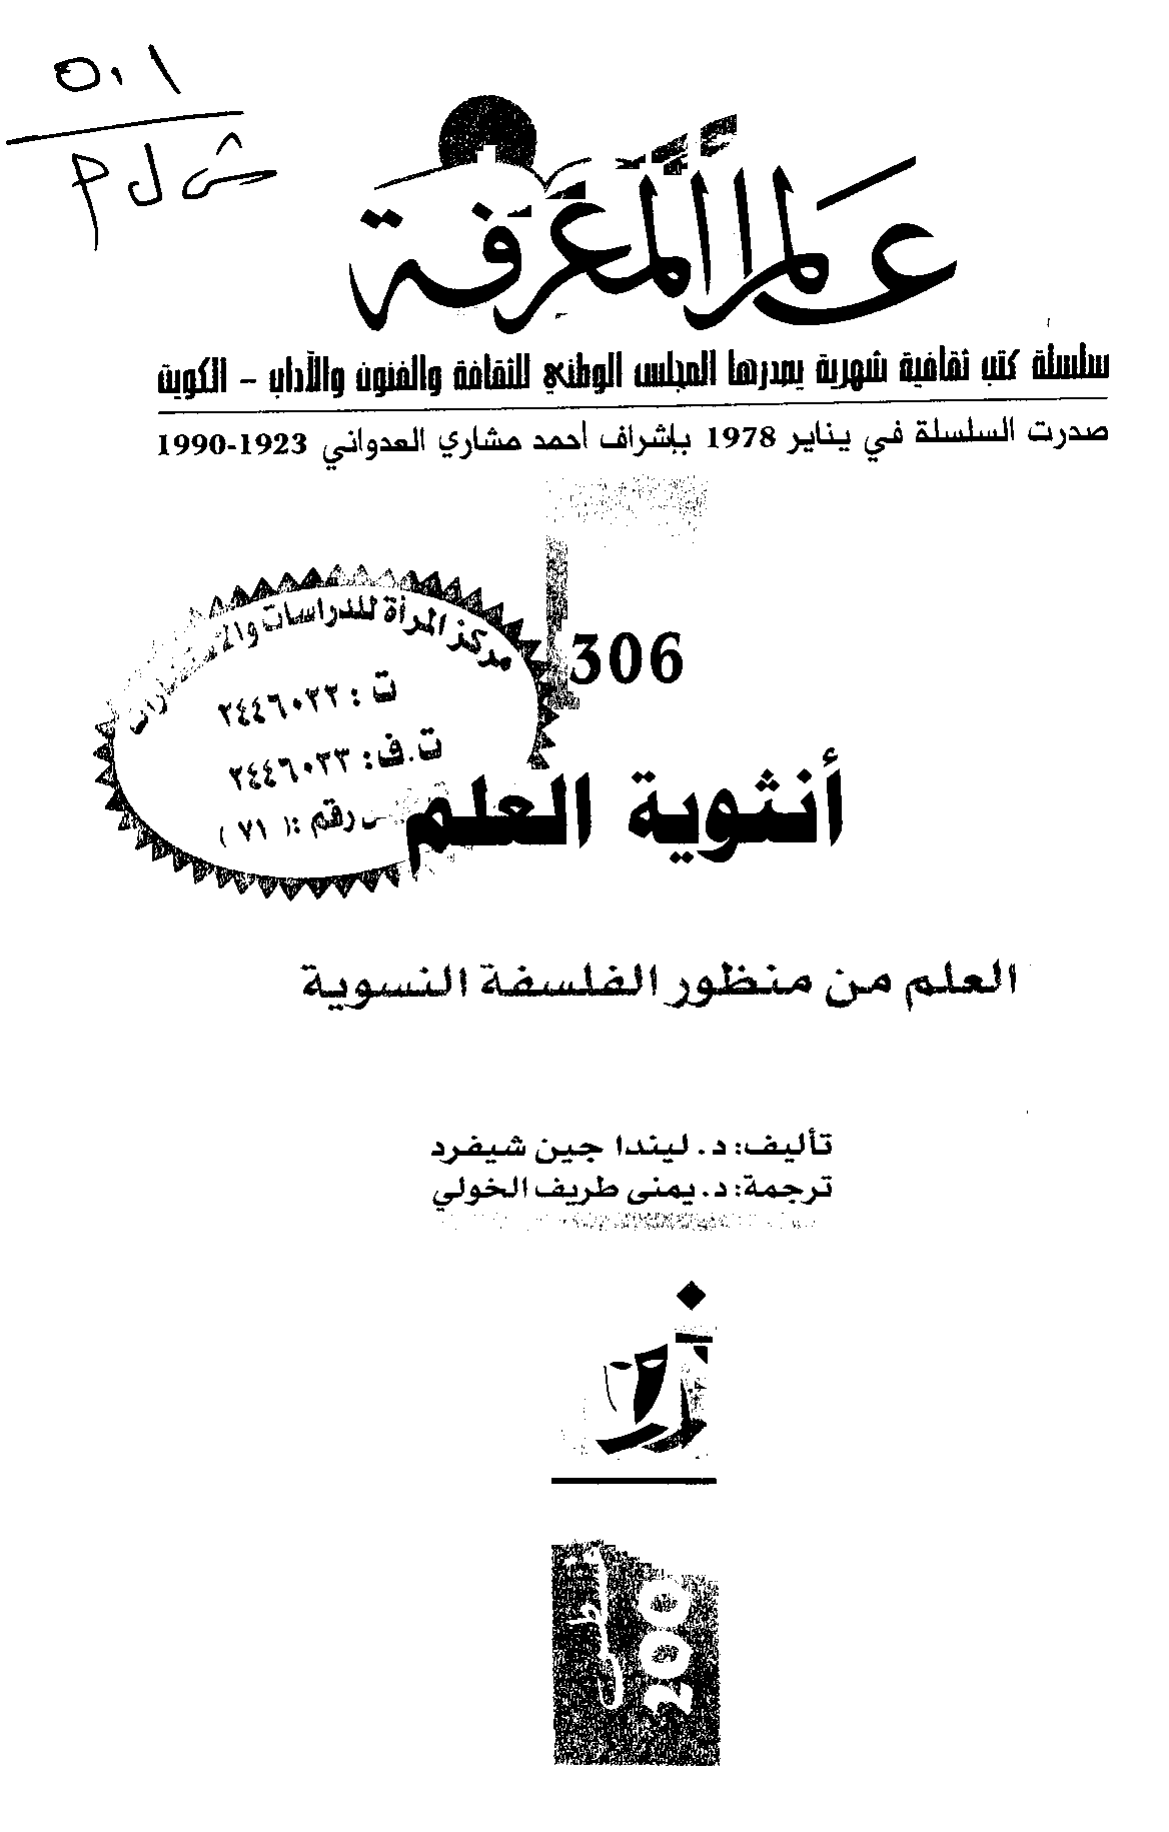 ٥٠١
ش ل م
عالم المعرفة
سلسلة كتب ثقافية شهرية يصدرها المجلس الوطني للثقافة والفنون والآداب – الكويت
صدرت السلسلة في يناير 1978 بإشراف أحمد مشاري العدواني 1923-1990
306
مركز المرأة للدراسات
ت : ٢٤٤٦٠٢٣
ت.ف: ٢٤٤٦٠٢٣
رقم :( ٧١ )
أنثوية العلم
العلم من منظور الفلسفة النسوية
تأليف: د. ليندا جين شيفرد
ترجمة: د. يمنى طريف الخولي